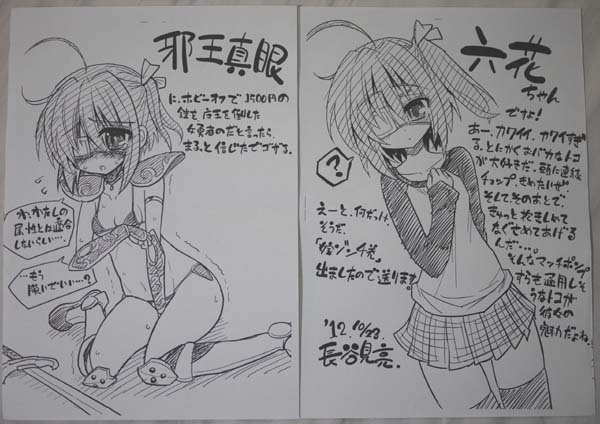 邪王真眼
に、ホビーオフで1500円の
鎧を店主を倒した
女勇者のだと言ったら、
まるっと信じたでゴザる。
わ、わたしの
属性とは適合
しないらしい…
…もう
脱いでいい…?
六花
ちゃん
ですよ!
あー、カワイイ、カワイすぎ
る、とにかくおバカなトコ
が大好きだ。頭に連続
チョップ、きめたいぜ
そして、そのあとで、
ぎゅっと抱きしめて
なぐさめてあげる
んだ…。
そんなマッチポンプ
すらも通用しそ
うなトコが
彼女の
魅力だよね
?
えーと、何だっけ
そうだ、
出ましたので送ります
'12.10/23.
長谷見亮.